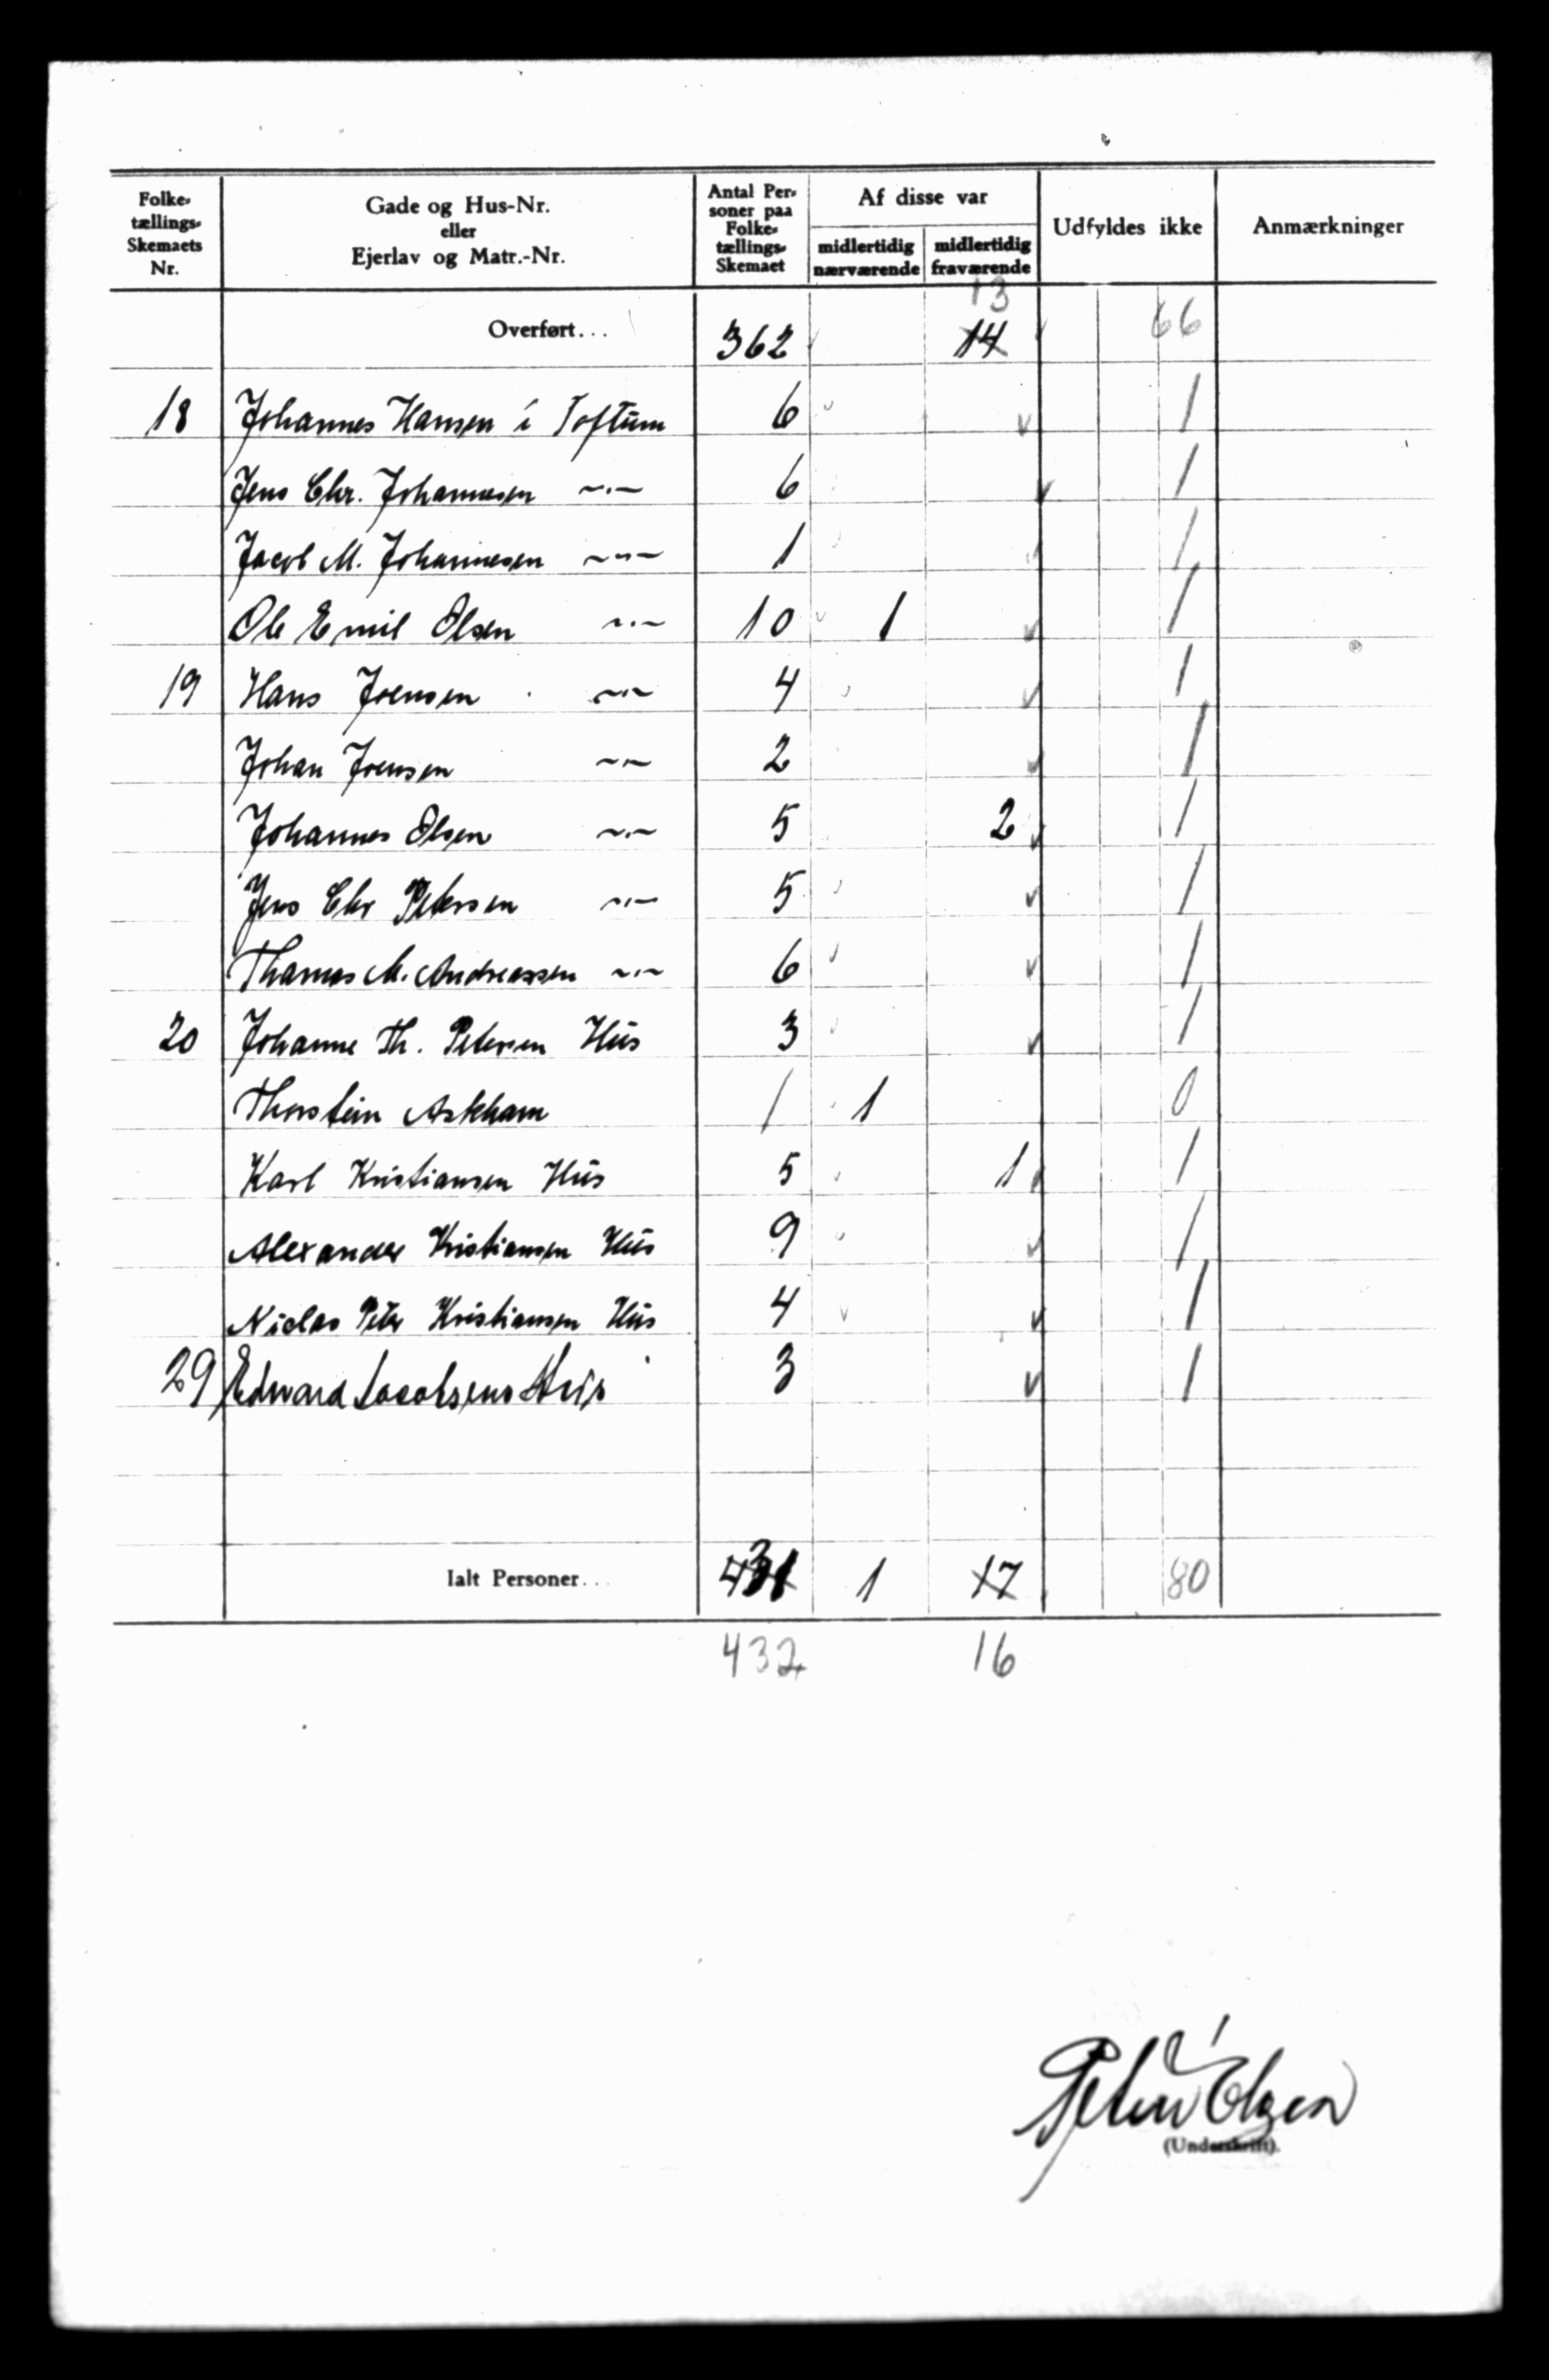 Folke-
tællings-
Skemaets
Nr.
Gade og Hus-Nr.
eller
Ejerlav og Matr.-Nr.
Antal Per-
soner paa
Folke-
tællings-
Skemaet
Af disse var
midlertidig
nærværende
midlertidig
fraværende
Udfyldes ikke
Anmærkninger
13
Overført... 362 14 66
18 Johannes Hansen i Toftum 6 1
Jens Chr. Johannesen -"- 6 1
Jacob M. Johannesen -"- 1 1
Ole Emil Olsen -"- 10 1 1
19 Hans Joensen -"- 4 1
Johan Joensen -"- 2 1
Johannes Olsen -"- 5 2 1
Jens Chr Petersen -"- 5 1
Thomas M. Andreassen -"- 6 1
20 Johanne Th. Petersen Hus 3 1
Thorstein Askham 1 1 0
Karl Kristiansen Hus 5 1 1
Alexander Kristiansen Hus 9 1
Niclas Peter Kristiansen Hus 4 1
29 Edward Jacobsens Hus 3 1
Ialt Personer... 431 1 17 80
432 16
Peter Olsen
(Underskrift).